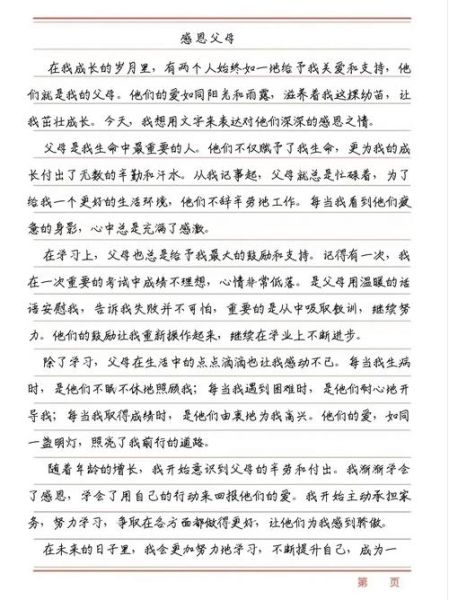 感恩父母
在我成长的岁月里，有两个人始终如一地给予我关爱和支持，他
们就是我的父母。他们的爱如同阳光和雨露，滋养着我这棵幼苗，让
我茁壮成长。今天，我想用文字来表达对他们深深的感恩之情。
父母是我生命中最重要的人。他们不仅赋予了我生命，更为我的成
长付出了无数的辛勤和汗水。从我记事起，父母就总是忙碌着，为了
给我一个更好的生活环境，他们不辞辛劳地工作。每当我看到他们疲
惫的身影，心中总是充满了感激。
在学习上，父母也总是给予我最大的鼓励和支持。记得有一次，我
在一次重要的考试中成绩不理想，心情非常低落。是父母用温暖的话
语安慰我，告诉我失败并不可怕，重要的是从中吸取教训，继续努
力。他们的鼓励让我重新振作起来，继续在学业上不断进步。
除了学习，父母在生活中的点点滴滴也让我感动不已。每当我生病
时，是他们不眠不休地照顾我；每当我遇到困难时，是他们耐心地开
导我；每当我取得成绩时，是他们由衷地为我高兴。他们的爱，如同
一盏明灯，照亮了我前行的道路。
随着年龄的增长，我开始意识到父母的辛劳和付出。我渐渐学会
了感恩，学会了用自己的行动来回报他们的爱。我开始主动承担家
务，努力学习，争取在各方面都做得更好，让他们为我感到骄傲。
在未来的日子里，我会更加努力地学习，不断提升自己，成为一
第 页